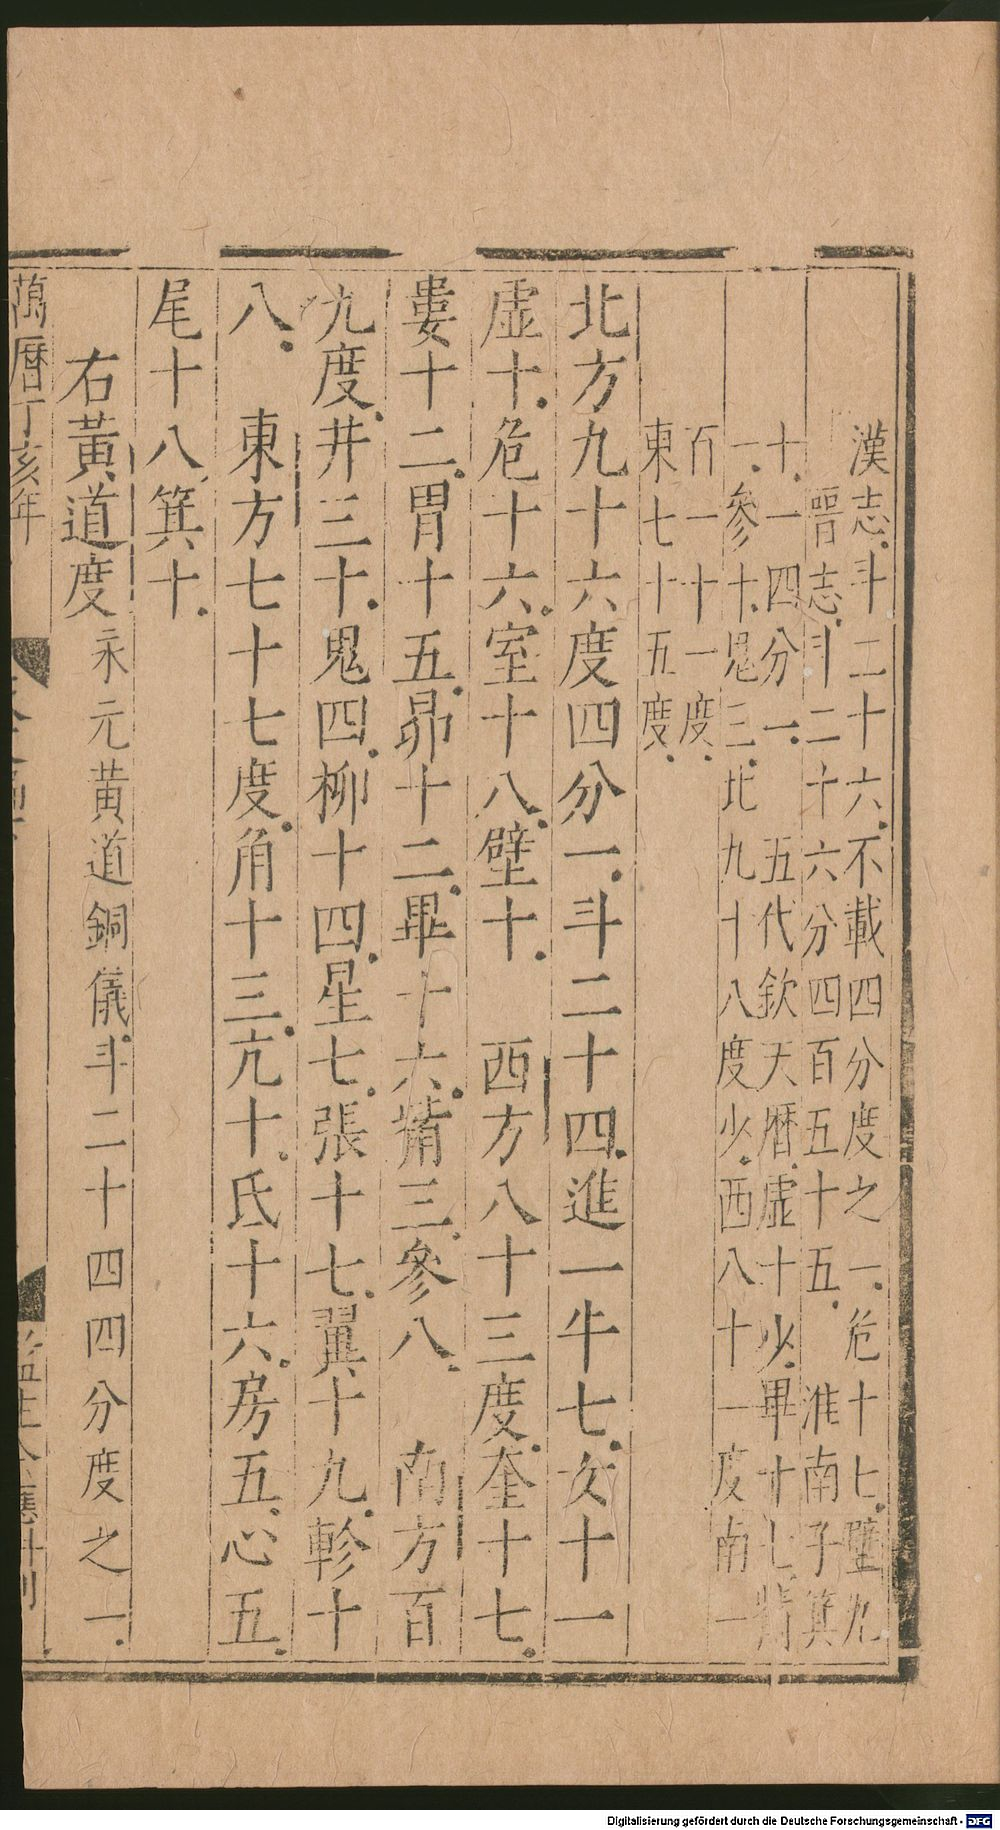 漢志斗二十六不載四分度之一危十七壁九
晉志斗二十六分四百五十五　淮南子箕
十一四分一　五代欽天曆虛十少畢十七觜
一參十鬼三北九十八度少西八十一度南一
百一十一度
東七十五度
北方九十六度四分一斗二十四進一牛七女十一
虛十危十六室十八壁十　西方八十三度奎十七
婁十二胃十五昴十二畢十六觜三參八　南方百
九度井三十鬼四柳十四星七張十七翼十九軫十
八　東方七十七度角十三亢十氐十六房五心五
尾十八箕十
右黃道度永元黃道銅儀斗二十四四分度之一
萬曆丁亥年
刊
Digitalisierung gefördert durch die Deutsche Forschungsgemeinschaft - DFG